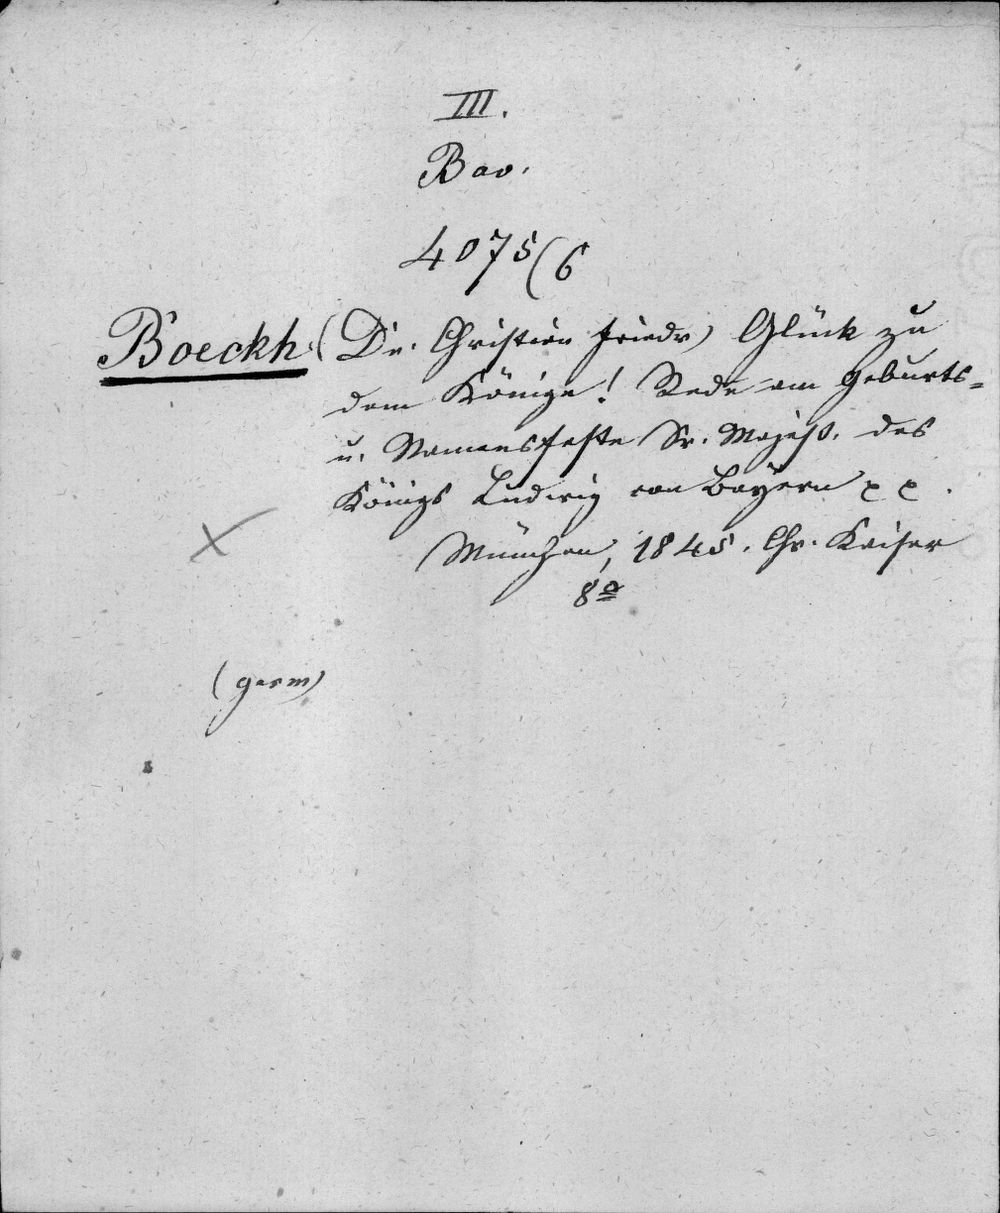 III.
Bav.
4075(6
Boeckh (Dr. Christian Friedr) Glück zu
dem Könige! Rede am Geburts-
u. Namensfeste Sr. Majest. des
Königs Ludwig von Bayern
München, 1845. Chr. Kaiser
8º
(germ)